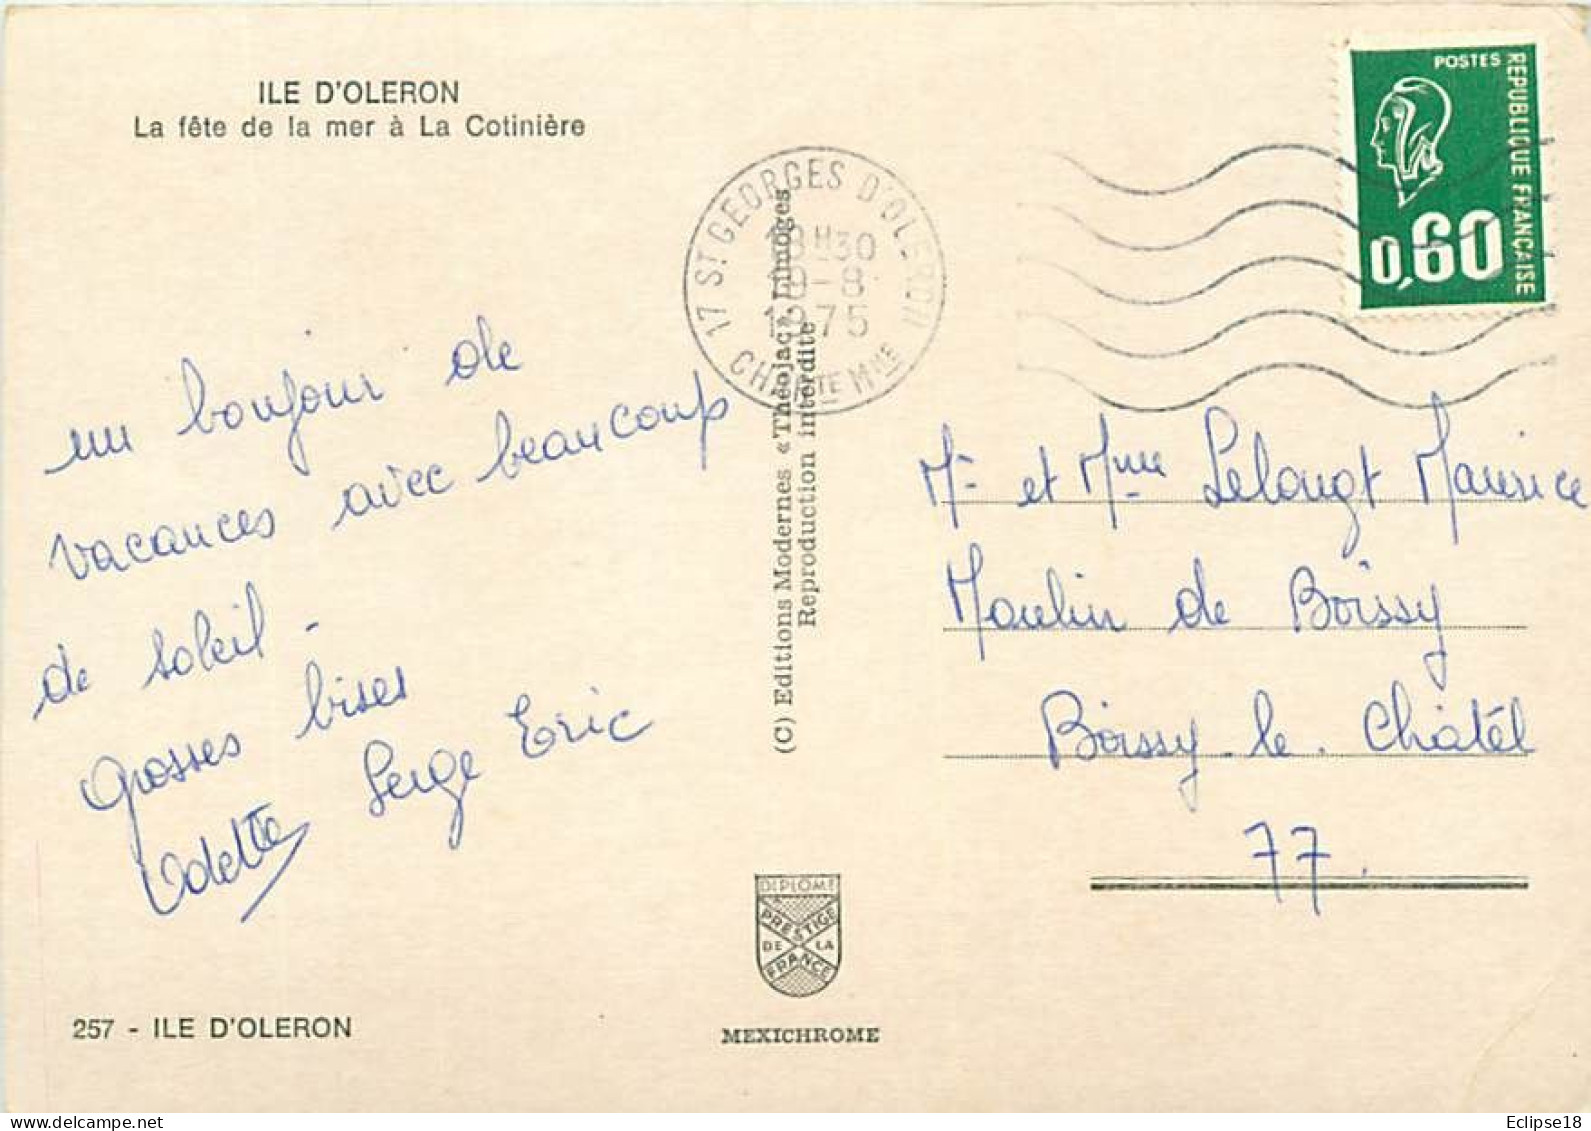 ILE D'OLERON
La fête de la mer à La Cotinière
POSTES
REPUBLIQUE FRANÇAISE
0,60
17 ST GEORGES D'OLERON
18H30
1975
CHARTE MME
un bonjour de
vacances avec beaucoup
de soleil -
Grosses bises
Odette Serge Eric
(C) Editions Modernes « Théojac » Limoges
Reproduction interdite
Mr et Mme Lelongt Maurice
Moulin de Boissy
Boissy le Châtel
77.
DIPLOME
PRESTIGE
DE LA
FRANCE
MEXICHROME
257 - ILE D'OLERON
Eclipse18